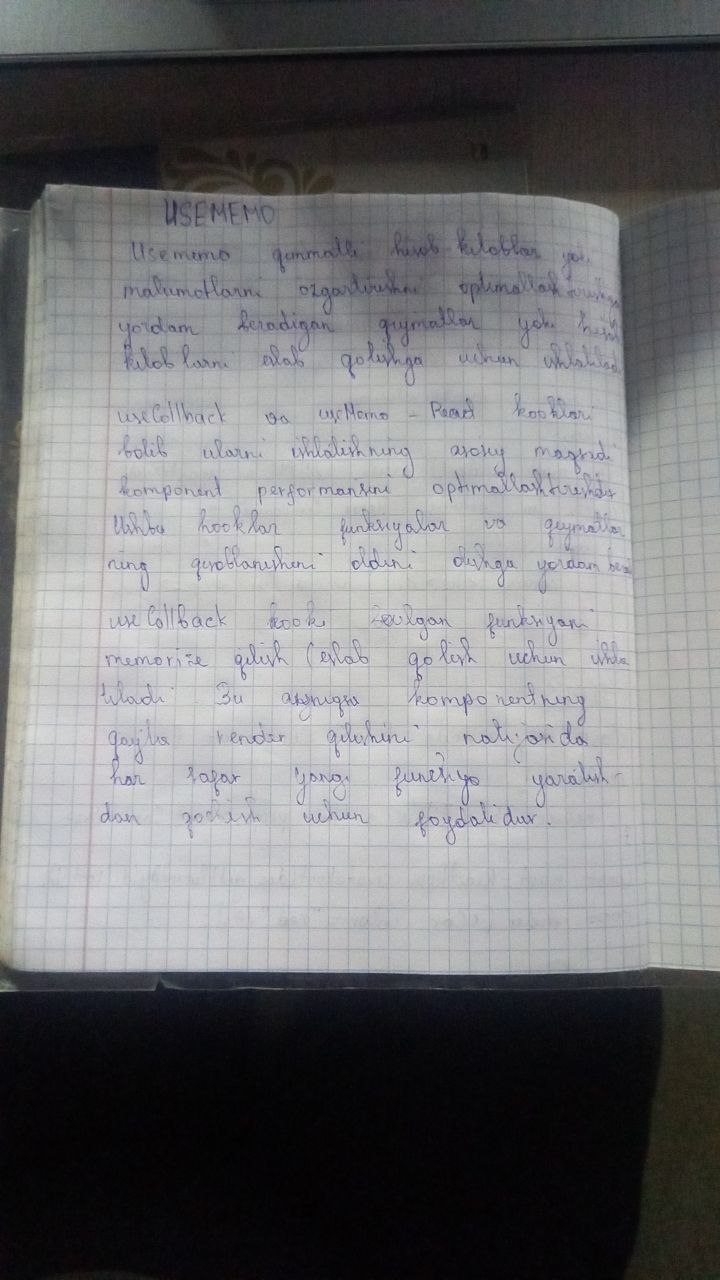 USEMEMO
Usememo qimmatli hisob-kitoblar yoki
malumotlarni ozgartirishni optimallashtirishga
yordam beradigan qiymatlar yoki hisob
kitoblarni eslab qolishga uchun ishlatilad
useCallback va useMemo - React hooklari
bolib ularni ishlatishning asosiy maqsadi
komponent performansini optimallashtirishdir
Ushbu hooklar funksiyalar va qiymatlar
ning hisoblanishini oldini olishga yordam bera
useCallback hooki berilgan funksiyani
memorize qilish (eslab qolish uchun ishla
tiladi Bu ayniqsa komponentning
qayta render qilishini natijasida
har safar yangi funksiya yaratish-
dan qochish uchun foydalidur.